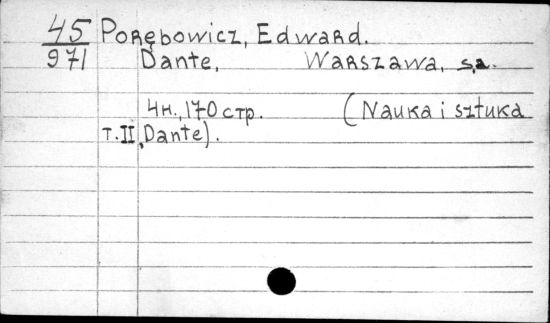 45 Porębowicz, Edward.
971 Dante, Warszawa, s,a.
4н.,170 стр. (Nauka i sztuka
т.II, Dante).